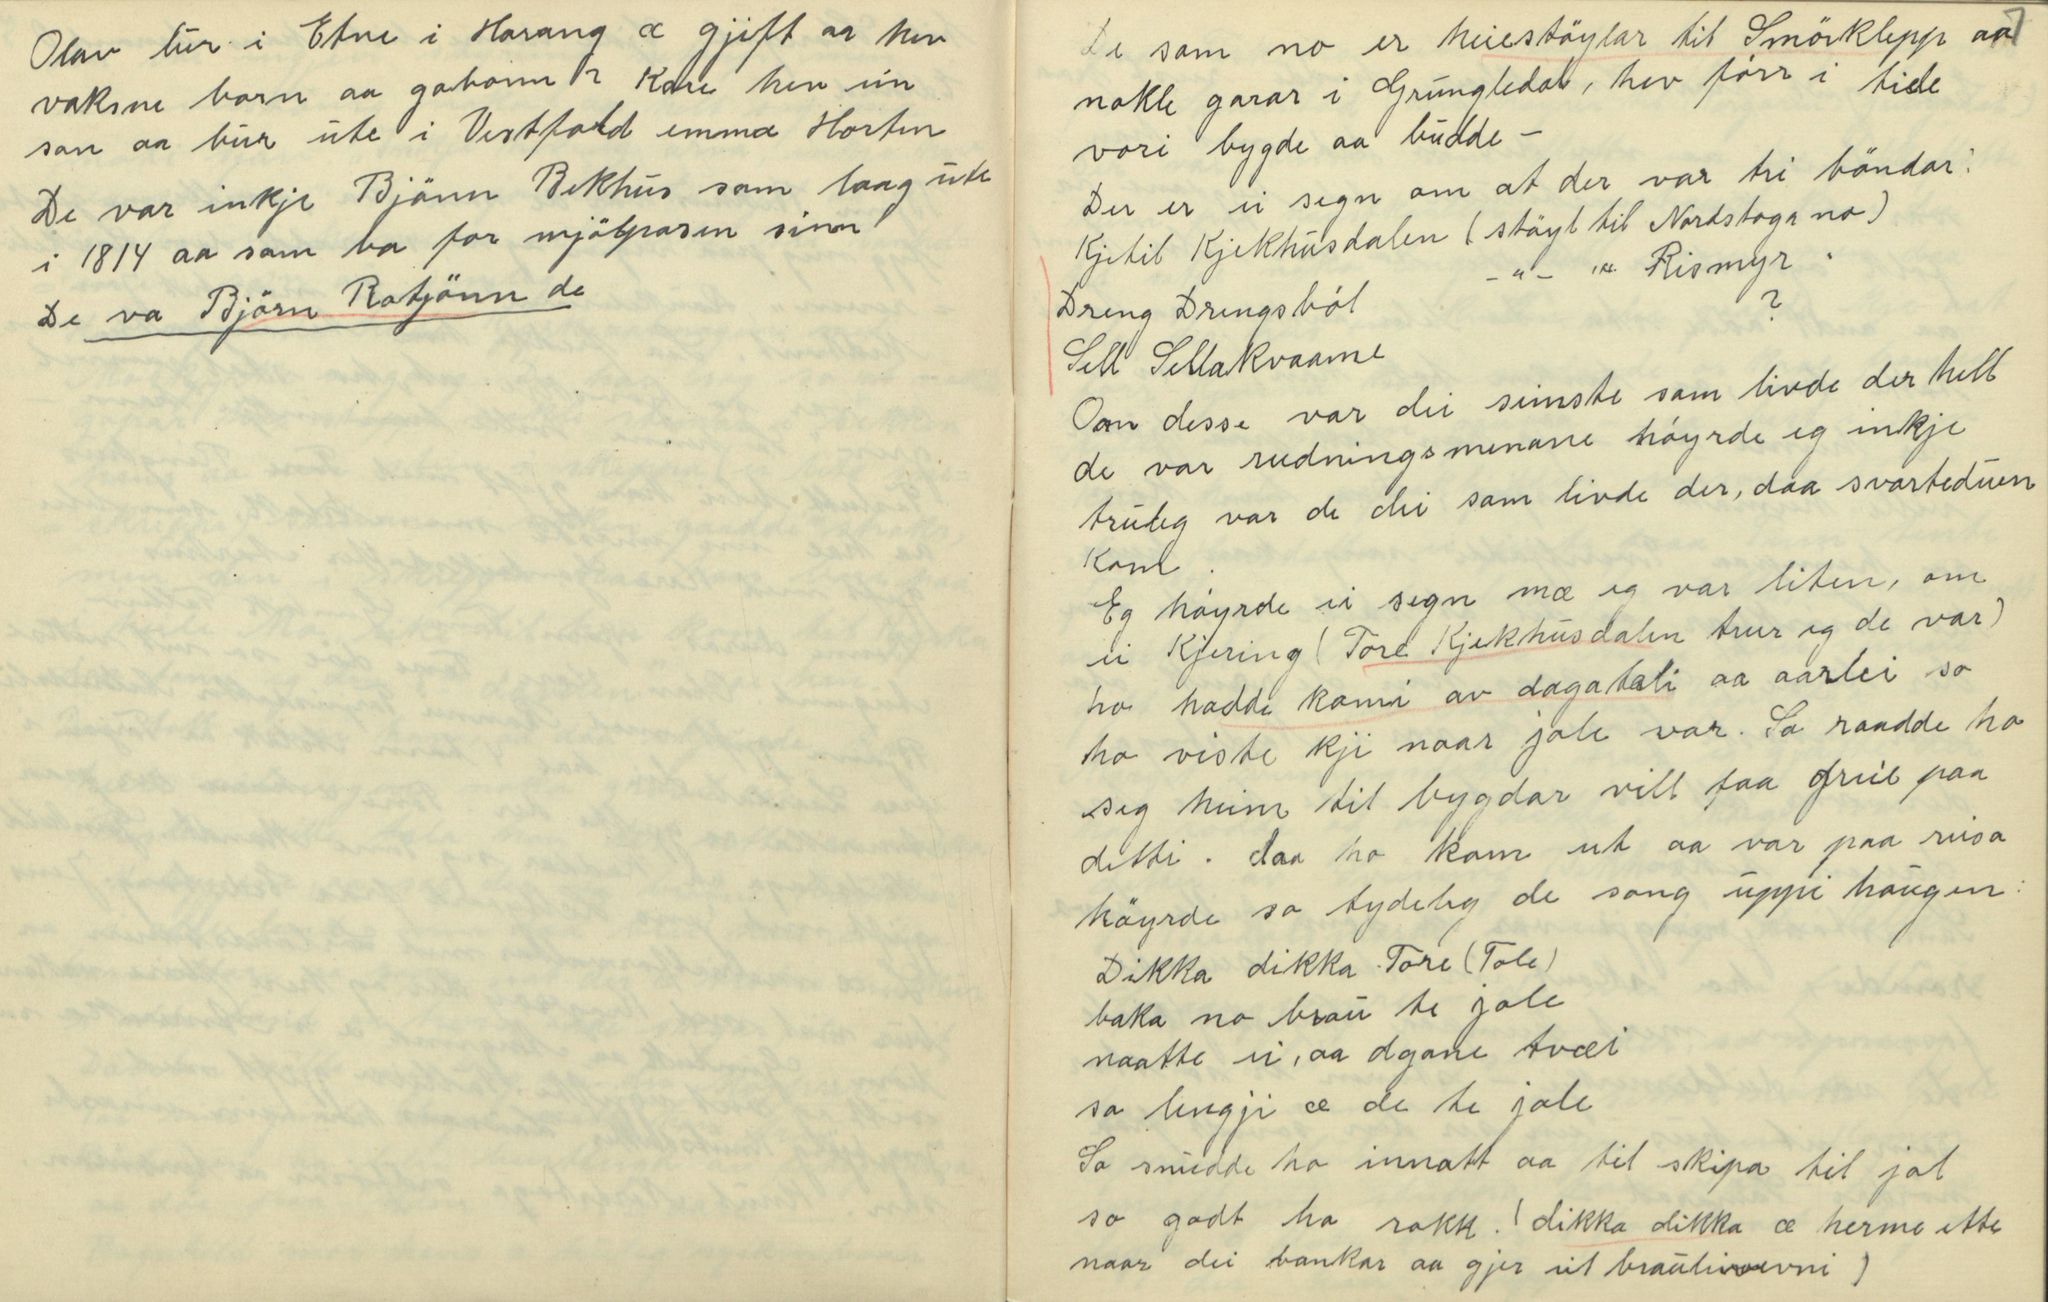 Olav bur i Etne i Harang æ gjift aa hev
vaksne born aa gobonn? Kare hev ein
son aa bur ute i Vestfold emmæ Horten
De var inkje Bjönn Bekhus som laag ute
i 1814 aa som ba for mjölposen sinn
De va Björn Rotjönn de
De som no er heiestöylar til Smörklepp aa
nokle garar i Grungledal, hev förr i tide
vori bygde aa budde –
Der er ei segn om at der var tri böndar:
Kjetil Kjekhusdalen (stöyl til Nordstoga no)
Dreng Drengsból -"- " Rismyr.
Sell Sellakvaame ?
Om desse var dei seinste som livde der hell
de var rudningsmenane höyrde eg inkje
truleg var de dei som livde der, daa svartedauen
kom.
Eg höyrde ei segn mæ eg var liten, om
ei Kjering (Tore Kjekhusdalen trur eg de var)
ho hadde komi av dagatali aa aarlei so
ho viste kji naar jole var. So raadde ho
seg heim til bygdar vill faa greie paa
detti. daa ho kom ut aa var paa reisa
höyrde so tydeleg de song uppi haugen:
Dikka dikka Tore (Tole)
baka no brau te jole
naatte ei, aa dgane tvæi
so lengji æ de te jole
So snudde ho innatt aa til skipa til jol
so godt ho rokk. (dikka dikka æ herme ette
naar dei bankar aa gjer ut brauleivevni)